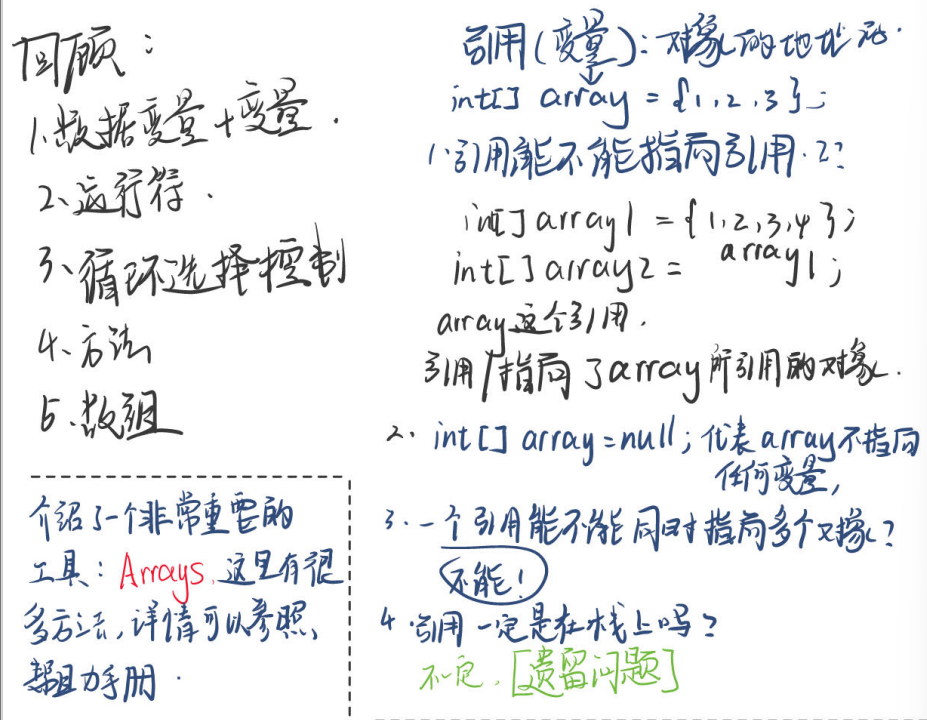 回顾：
1.数据变量+变量.
2、运行符.
3、循环选择控制
4、方法
5.数组
介绍了一个非常重要的
工具：Arrays,这里有很
多方法,详情可以参照、
帮助手册.
引用(变量)：对象的地址
int[] array = {1,2,3};
1.引用能不能指向引用.2?
int[] array1 = {1,2,3,4};
int[] array2 = array1;
array这个引用.
引用/指向了array所引用的对象.
2. int[] array=null;代表array不指向
任何变量,
3.一个引用能不能同时指向多个对象?
不能!
4.引用一定是在栈上吗?
不一定.[遗留问题]